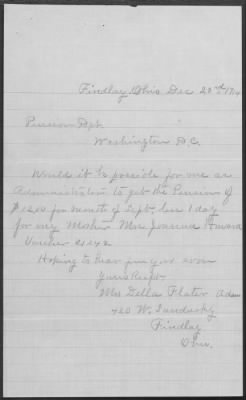 Findlay, Ohio Dec 20th 1914
Pension Dpt.
Washington D.C.
Would it be possible for me as
Administrator to get the Pension of
$12.00 for month of Sept. less 1 day
for my Mother Mrs Joanna Howard
Voucher
Hoping to hear from you soon
Yours Respt.
Mrs Della Flater Adm
420 W. Sandusky
Findlay
Ohio.